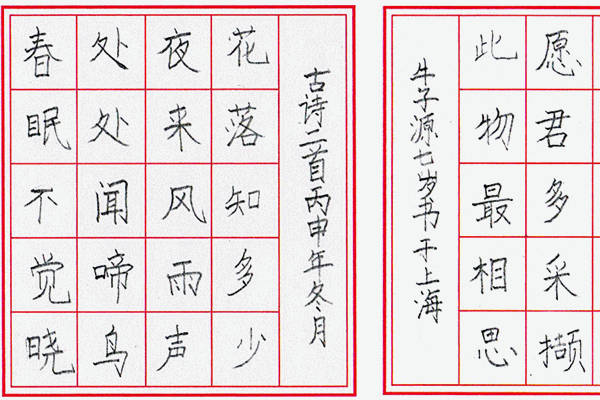 春眠不觉晓
处处闻啼鸟
夜来风雨声
花落知多少
古诗二首丙申年冬月
愿君多采撷
此物最相思
牛子源七岁书于上海